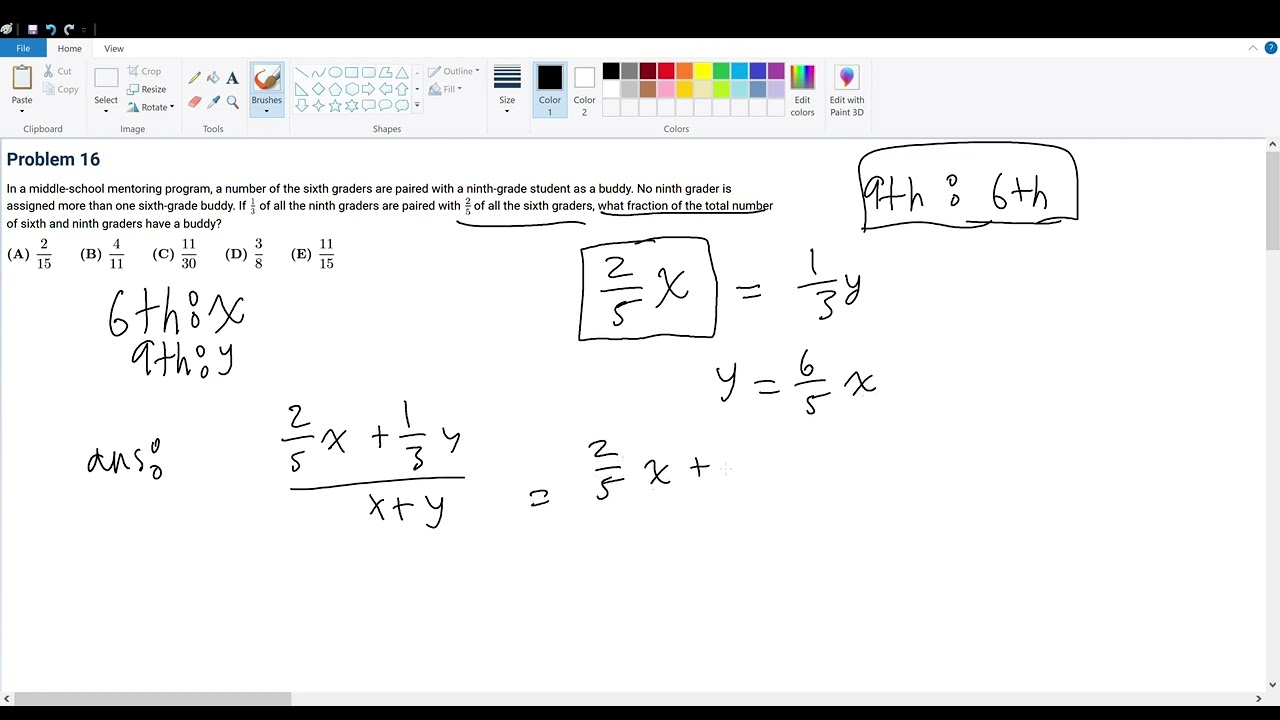 File Home View
Paste Cut Copy Clipboard
Select Crop Resize Rotate Image
Tools
Brushes
Shapes Outline Fill
Size
Color 1
Color 2
Edit colors
Edit with Paint 3D
Colors
Problem 16
In a middle-school mentoring program, a number of the sixth graders are paired with a ninth-grade student as a buddy. No ninth grader is
assigned more than one sixth-grade buddy. If 1/3 of all the ninth graders are paired with 2/5 of all the sixth graders, what fraction of the total number
of sixth and ninth graders have a buddy?
(A) 2/15 (B) 4/11 (C) 11/30 (D) 3/8 (E) 11/15
9th : 6th
6th : x
9th : y
2/5 x = 1/3 y
y = 6/5 x
ans: (2/5 x + 1/3 y)/(x + y) = 2/5 x +